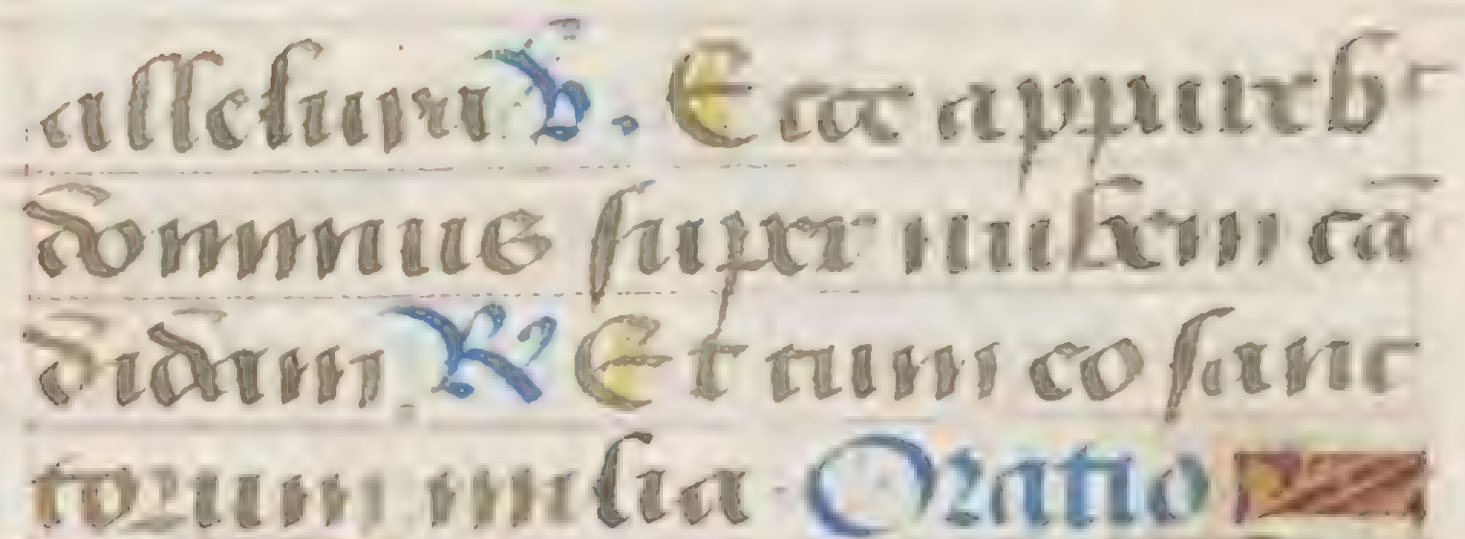 alleluya ℣. Ecce apparebᵗ
dominus super nubem cā
didam ℟ Et cum eo sanc
torum milia Oratio